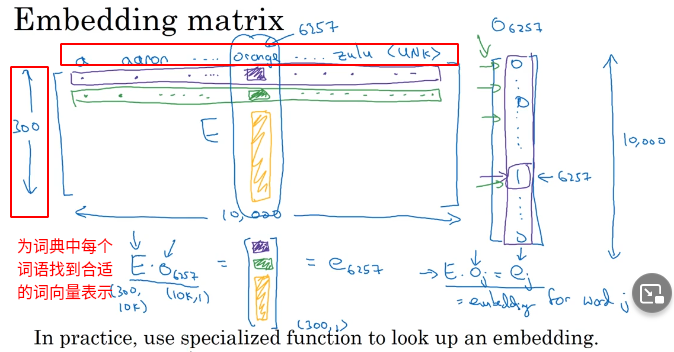 Embedding matrix
6257
O6257
a aaron .... orange .... zulu <UNK>
300
E
10,000
0
0
1 ← 6257
0
10,000
为词典中每个
词语找到合适
的词向量表示
E · O6257 = [ ] = e6257
(300, 10K) (10K, 1)
(300, 1)
→ E · Oj = ej
= embedding for word j
In practice, use specialized function to look up an embedding.